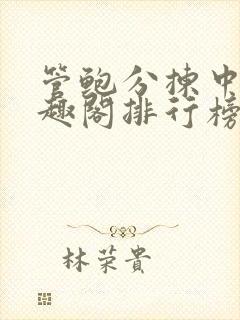 管鲍分拣中
趣阁排行榜
林荣貴